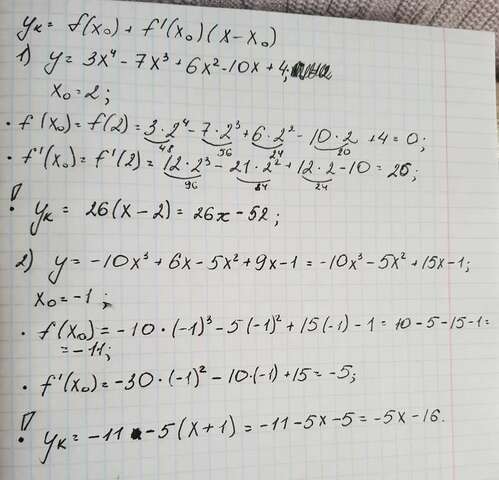 yк = f(x₀) + f'(x₀)(x-x₀)
1) y = 3x⁴ - 7x³ + 6x² - 10x + 4;
x₀ = 2;
• f(x₀) = f(2) = 3·2⁴ - 7·2³ + 6·2² - 10·2 + 4 = 0;
48 56 24 20
• f'(x₀) = f'(2) = 12·2³ - 21·2² + 12·2 - 10 = 26;
96 84 24
! yк = 26(x-2) = 26x - 52;
2) y = -10x³ + 6x - 5x² + 9x - 1 = -10x³ - 5x² + 15x - 1;
x₀ = -1;
• f(x₀) = -10·(-1)³ - 5(-1)² + 15(-1) - 1 = 10 - 5 - 15 - 1 =
= -11;
• f'(x₀) = -30·(-1)² - 10·(-1) + 15 = -5;
! yк = -11 - 5(x+1) = -11 - 5x - 5 = -5x - 16.